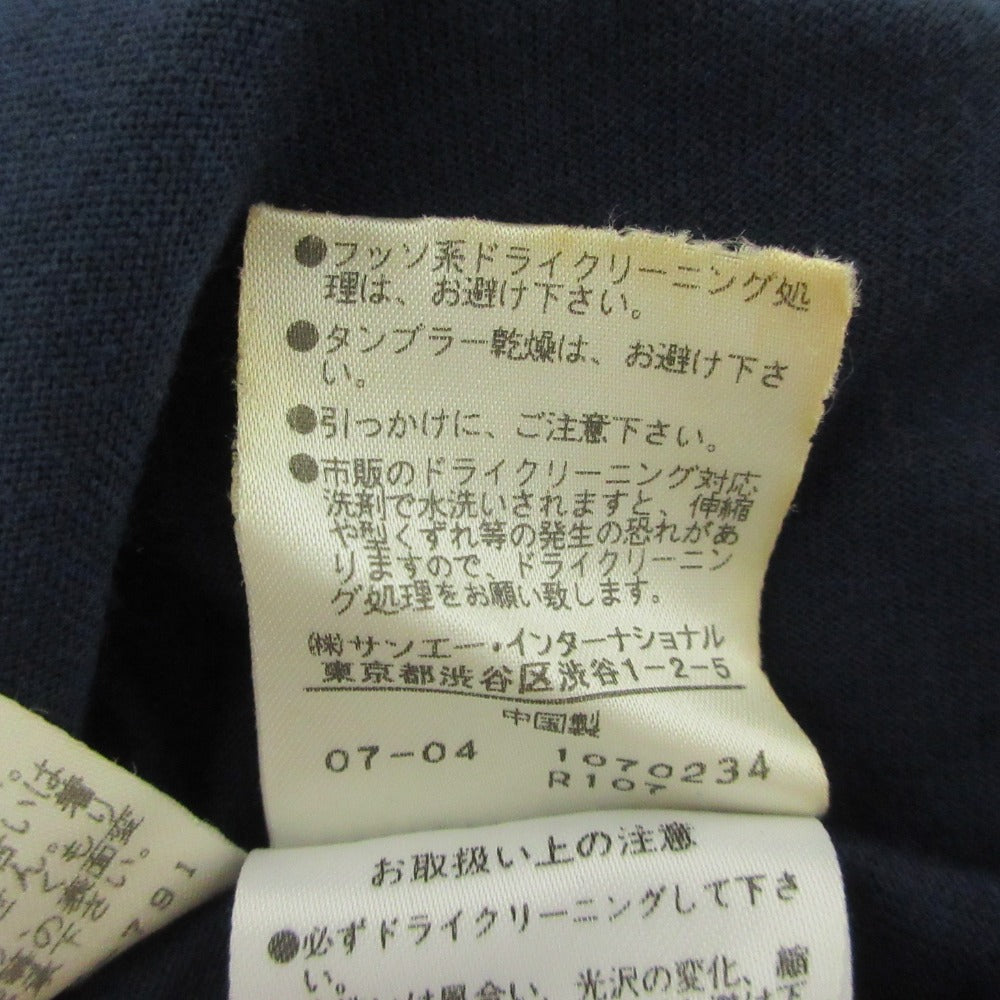 ●フッソ系ドライクリーニング処
理は、お避け下さい。
●タンブラー乾燥は、お避け下さ
い。
●引っかけに、ご注意下さい。
●市販のドライクリーニング対応
洗剤で水洗いされますと、伸縮
や型くずれ等の発生の恐れがあ
りますので、ドライクリーニン
グ処理をお願い致します。
㈱サンエー・インターナショナル
東京都渋谷区渋谷1-2-5
中国製
07-04 1070234
R107
お取扱い上の注意
●必ずドライクリーニングして下さ
い。
風合い、光沢の変化、縮